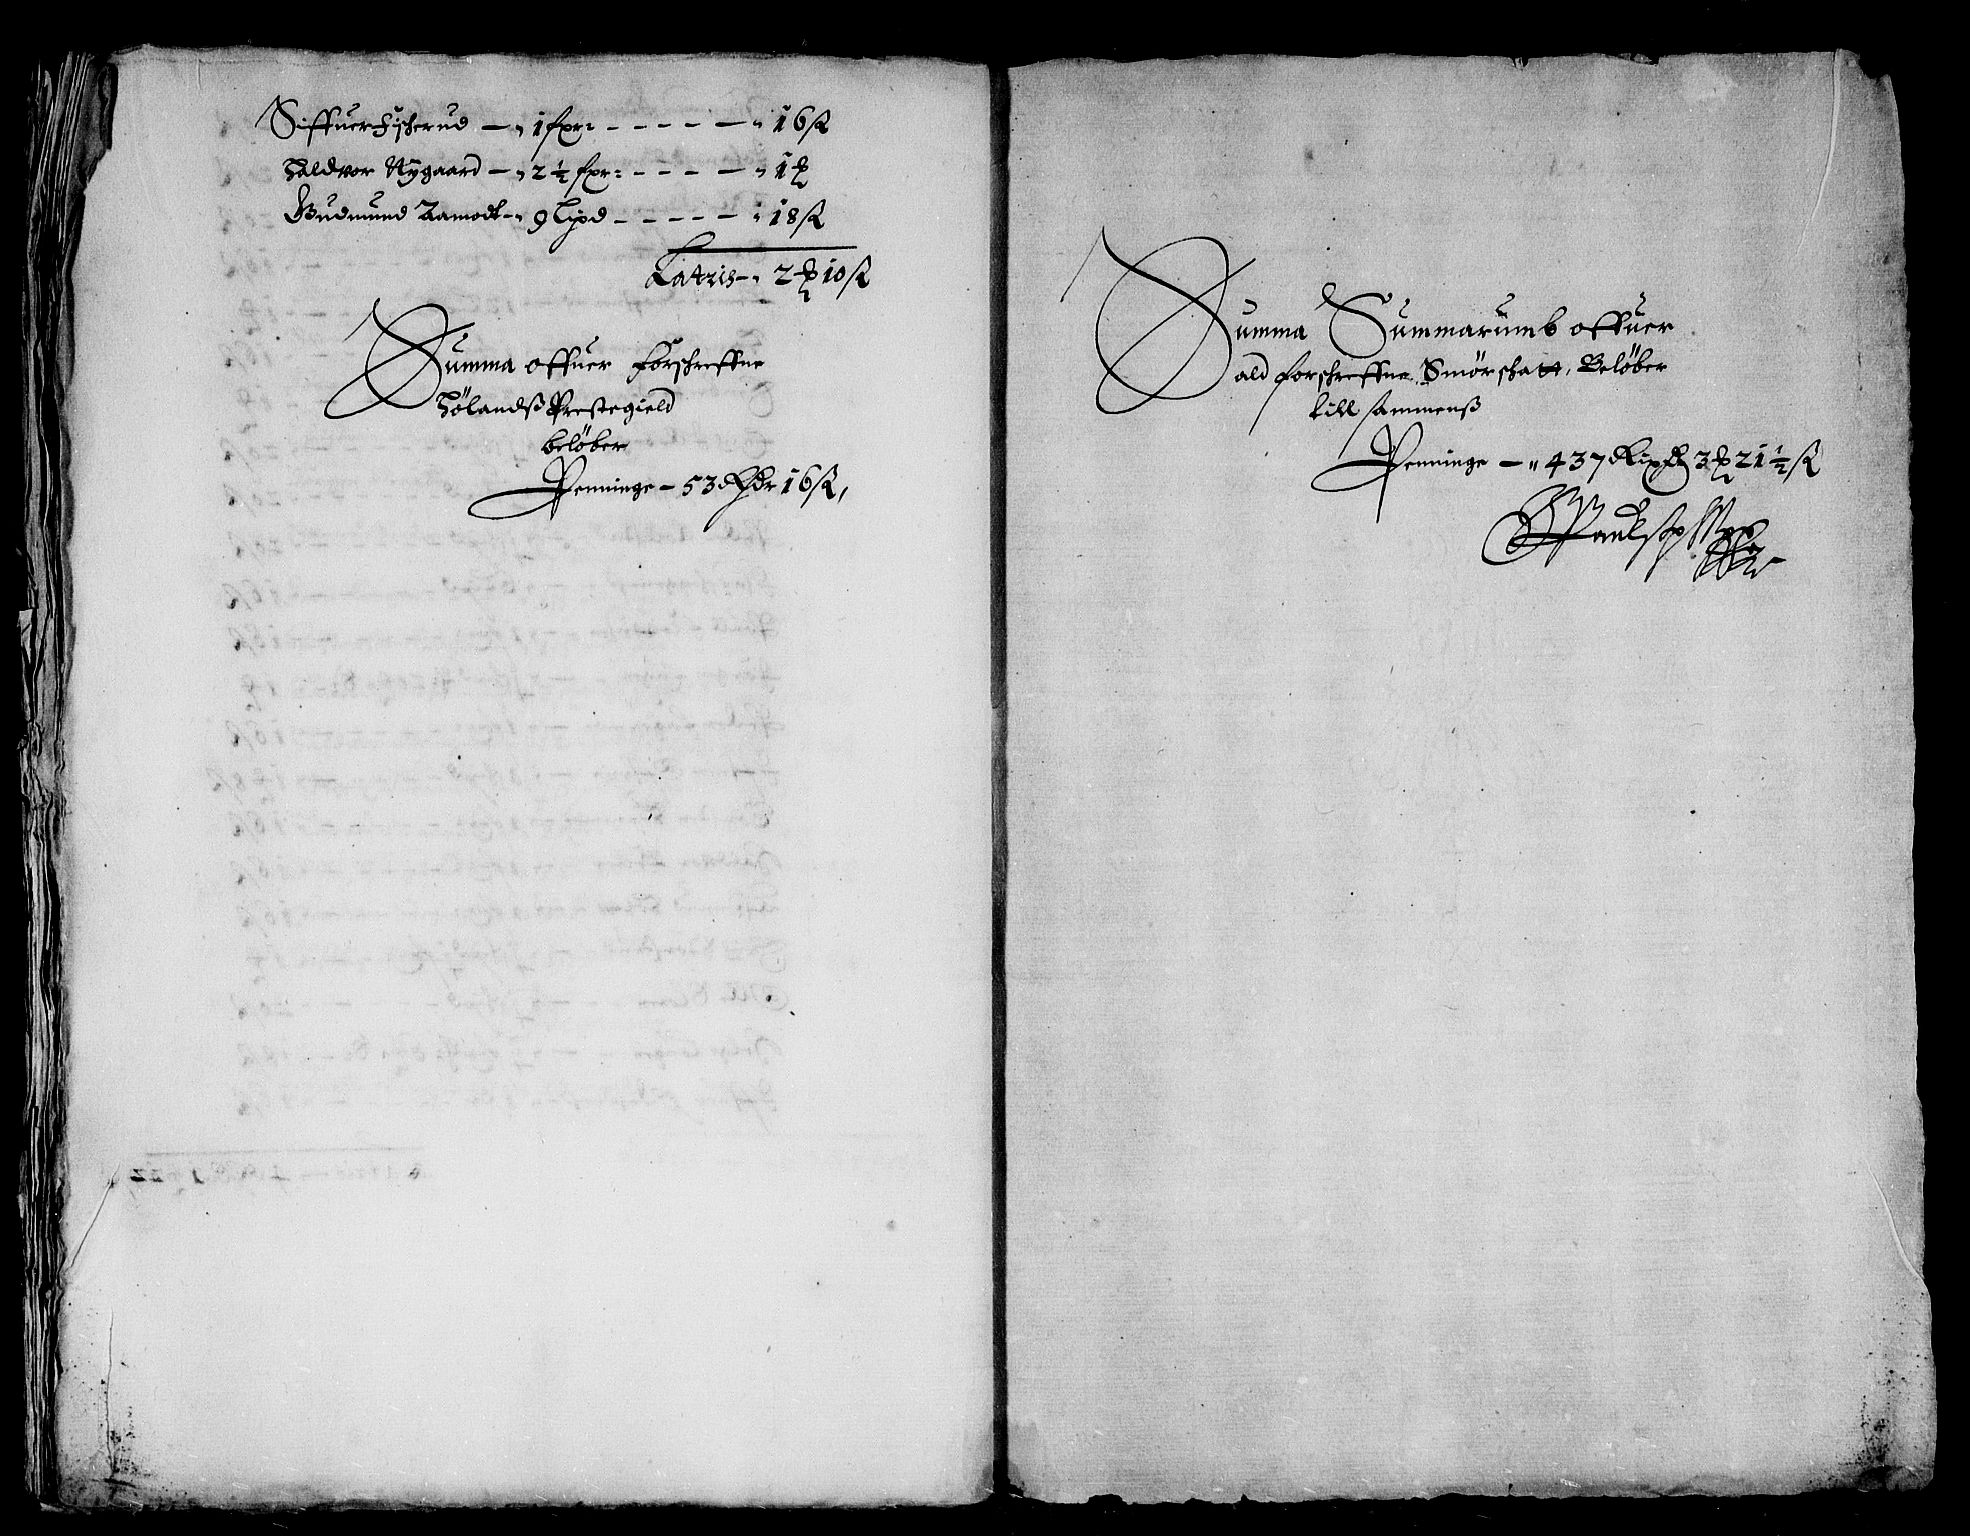 Siffuer Fischerud — „ 1 fxr: - - - - - — „ 16 ß
Haldvor Nygaard — „ 2 ½ fxr: - - - - — „ 1 ꝑ
Gudmund Aamodt - „ 9 lipd - - - - - — „ 18 ß
Latris - „ 2 ꝑ 10 ß
Summa offuer Forschreffne
Hölandß Prestegield
belöber
Penninge — 53 Rdr 16 ß,
Summa Summarumb offuer
ald forschreffne Smörschatt, Belöber
till sammenß
Penninge — „ 437 Rixd 3 ꝑ 21 ½ ß